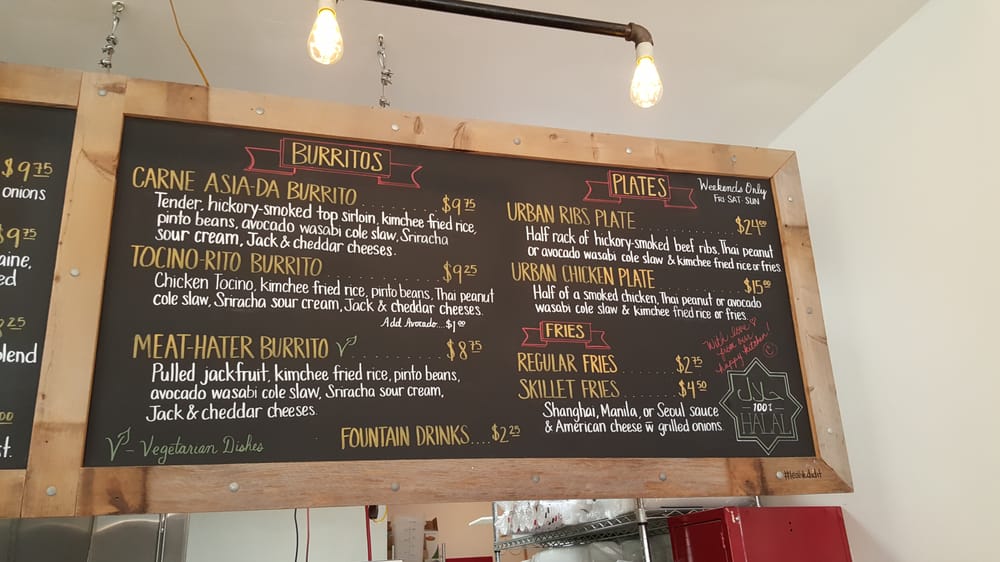 $9.75
onions
$9.75
aine,
ed
.25
blend
.00
t.
BURRITOS
CARNE ASIA-DA BURRITO ........ $9.75
Tender, hickory-smoked top sirloin, kimchee fried rice,
pinto beans, avocado wasabi cole slaw, Sriracha
sour cream, Jack & cheddar cheeses.
TOCINO-RITO BURRITO ........ $9.25
Chicken Tocino, kimchee fried rice, pinto beans, Thai peanut
cole slaw, Sriracha sour cream, Jack & cheddar cheeses.
Add Avocado....$1.00
MEAT-HATER BURRITO V ........ $8.75
Pulled jackfruit, kimchee fried rice, pinto beans,
avocado wasabi cole slaw, Sriracha sour cream,
Jack & cheddar cheeses.
V - Vegetarian Dishes
FOUNTAIN DRINKS....$2.25
PLATES
Weekends Only
FRI·SAT·SUN
URBAN RIBS PLATE ........ $24.00
Half rack of hickory-smoked beef ribs, Thai peanut
or avocado wasabi cole slaw & kimchee fried rice or fries
URBAN CHICKEN PLATE ........ $15.00
Half of a smoked chicken, Thai peanut or avocado
wasabi cole slaw & kimchee fried rice or fries.
FRIES
REGULAR FRIES ........ $2.75
SKILLET FRIES ........ $4.50
Shanghai, Manila, or Seoul sauce
& American cheese w̅ grilled onions.
With love
from our
happy kitchen!
حلال
100%
HALAL